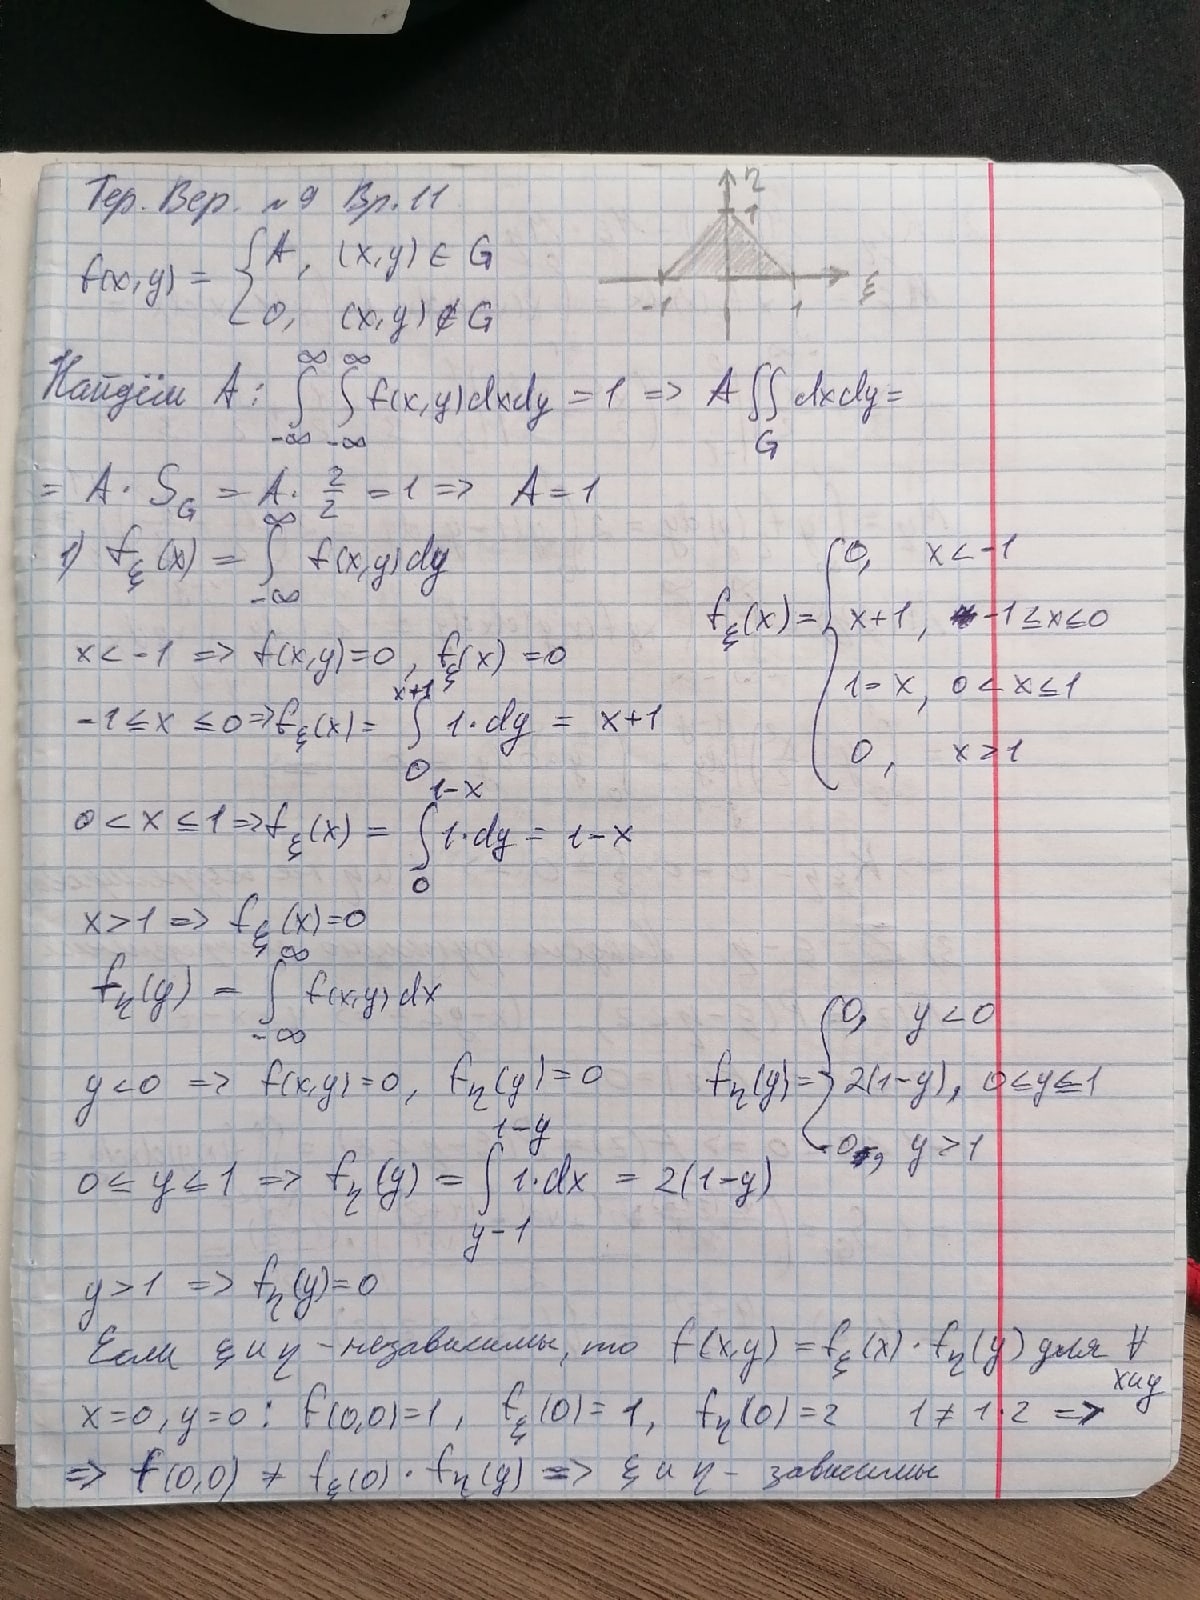 Тер. Вер. №9 Вр.11
η
1
-1 1 ξ
f(x,y) = { A, (x,y) ∈ G
0, (x,y) ∉ G
Найдём A: ∫_{-∞}^{∞} ∫_{-∞}^{∞} f(x,y)dxdy = 1 => A ∬_G dxdy =
= A · S_G = A · 2/2 = 1 => A = 1
1) f_ξ(x) = ∫_{-∞}^{∞} f(x,y)dy
x < -1 => f(x,y)=0, f_ξ(x) = 0
-1 ≤ x ≤ 0 => f_ξ(x) = ∫_0^{x+1} 1·dy = x+1
0 < x ≤ 1 => f_ξ(x) = ∫_0^{1-x} 1·dy = 1-x
x > 1 => f_ξ(x)=0
f_ξ(x) = { 0, x < -1
x+1, -1 ≤ x ≤ 0
1-x, 0 < x ≤ 1
0, x > 1
f_η(y) = ∫_{-∞}^{∞} f(x,y)dx
y < 0 => f(x,y)=0, f_η(y)=0
0 ≤ y ≤ 1 => f_η(y) = ∫_{y-1}^{1-y} 1·dx = 2(1-y)
y > 1 => f_η(y)=0
f_η(y) = { 0, y < 0
2(1-y), 0 ≤ y ≤ 1
0, y > 1
Если ξ и η - независимы, то f(x,y) = f_ξ(x) · f_η(y) для ∀
x и y
x=0, y=0: f(0,0)=1, f_ξ(0)=1, f_η(0)=2 1 ≠ 1·2 =>
=> f(0,0) ≠ f_ξ(0) · f_η(y) => ξ и η - зависимы